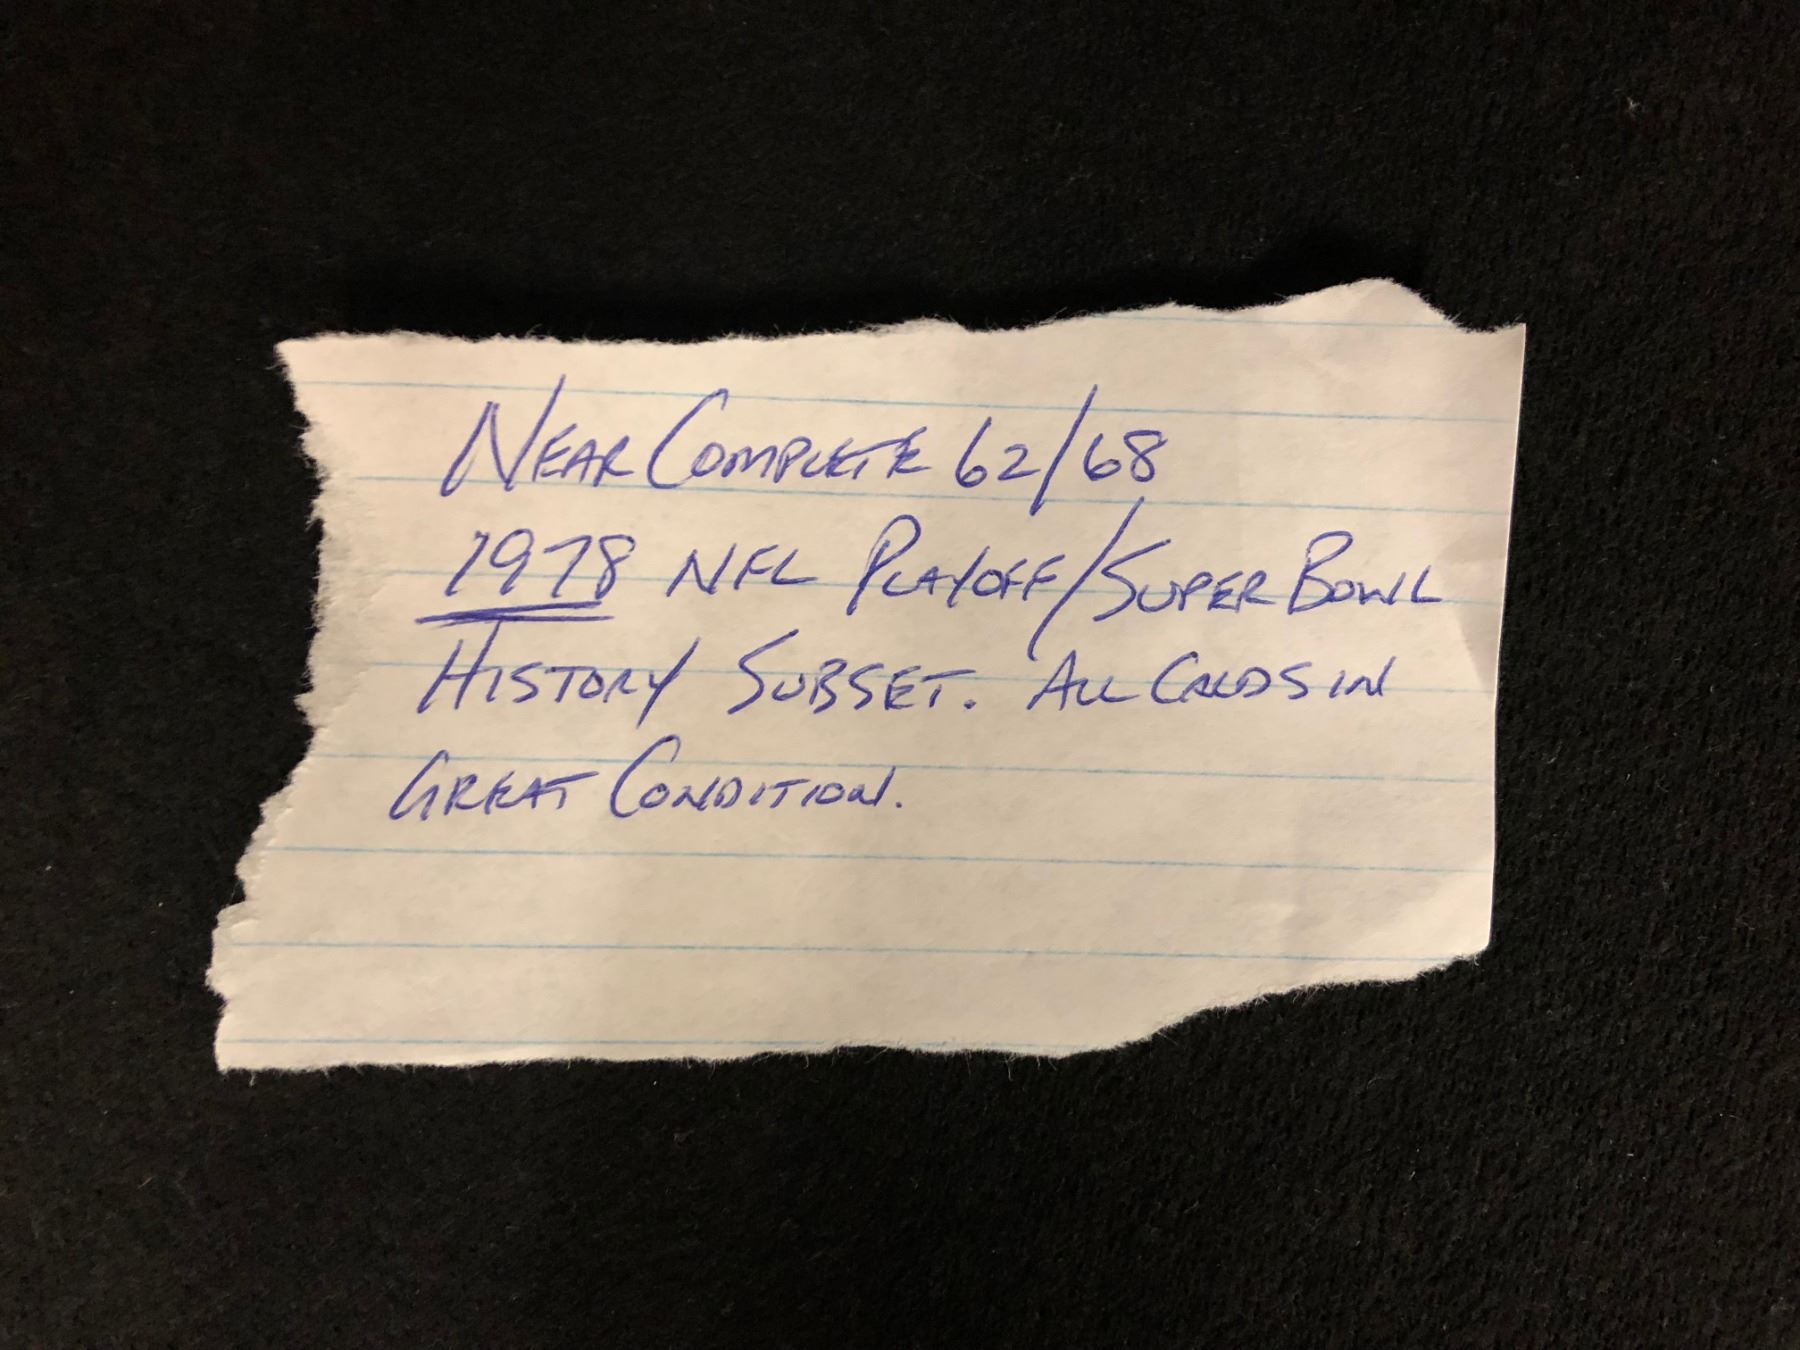 NEAR COMPLETE 62/68
1978 NFL PLAYOFF/SUPER BOWL
HISTORY SUBSET. ALL CARDS IN
GREAT CONDITION.